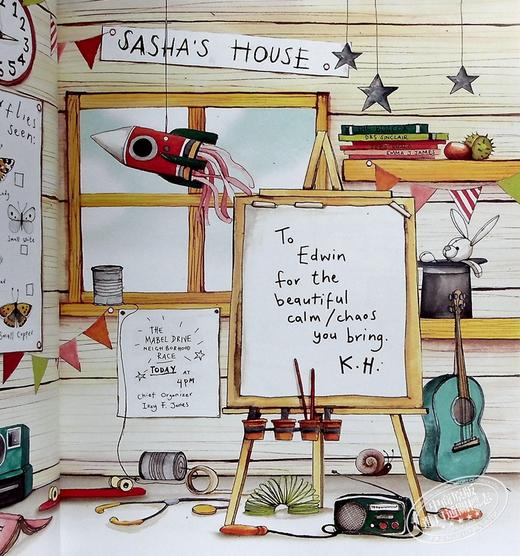 SASHA'S HOUSE
flies
seen:
Small White
Small Copper
DBS SINCLAIR
EMMA J JAMES
To
Edwin
for the
beautiful
calm/chaos
you bring.
K.H.
THE
MABEL DRIVE
NEIGHBORHOOD
RACE
TODAY AT
4PM
Chief Organizer
Izzy F. Jones